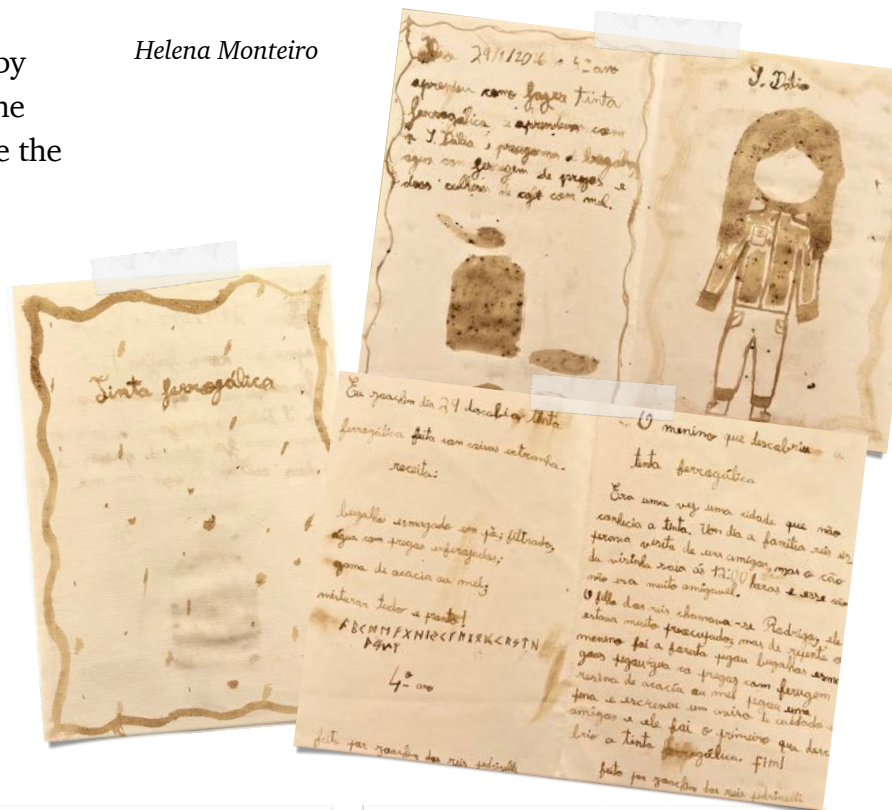 by
ne
e the
Helena Monteiro
Dia 29/1/2026 o 4º ano
aprendeu como fazer tinta
ferrogálica e aprenderam com
a J. Dália, precisamos de bugalhos,
agua com ferrugem de pregos e
duas colheres de café com mel.
J. Dália
Tinta ferrogálica
Eu joachim dia 29 descobri a tinta
ferrogálica feita com coisas estranha.
receita:
bugalho esmagado em pó; filtrado;
água com pregos enferrujados;
goma de acacia ou mel;
misturar tudo e pronto!
4º ano
feito por joachim dos reis pedrinelli
O menino que descobriu a
tinta ferrogálica
Era uma vez uma cidade que não
conhecia a tinta. Um dia a família reis
visita de uns amigos, mas o cão
da vizinha saia ás 12:00 horas e esse cão
não era muito amigavel.
O filho dos reis chamava-se Rodrigo, ele
estava muito preocupado, mas de repente o
menino foi a floresta pegou bugalhos
pregos com ferrugem
resina de acacia ou mel pegou uma
pena e escreveu um aviso
amigos e ele foi o primeiro que desco
briu a tinta ferrogálica. Fim!
feito por joachim dos reis pedrinelli